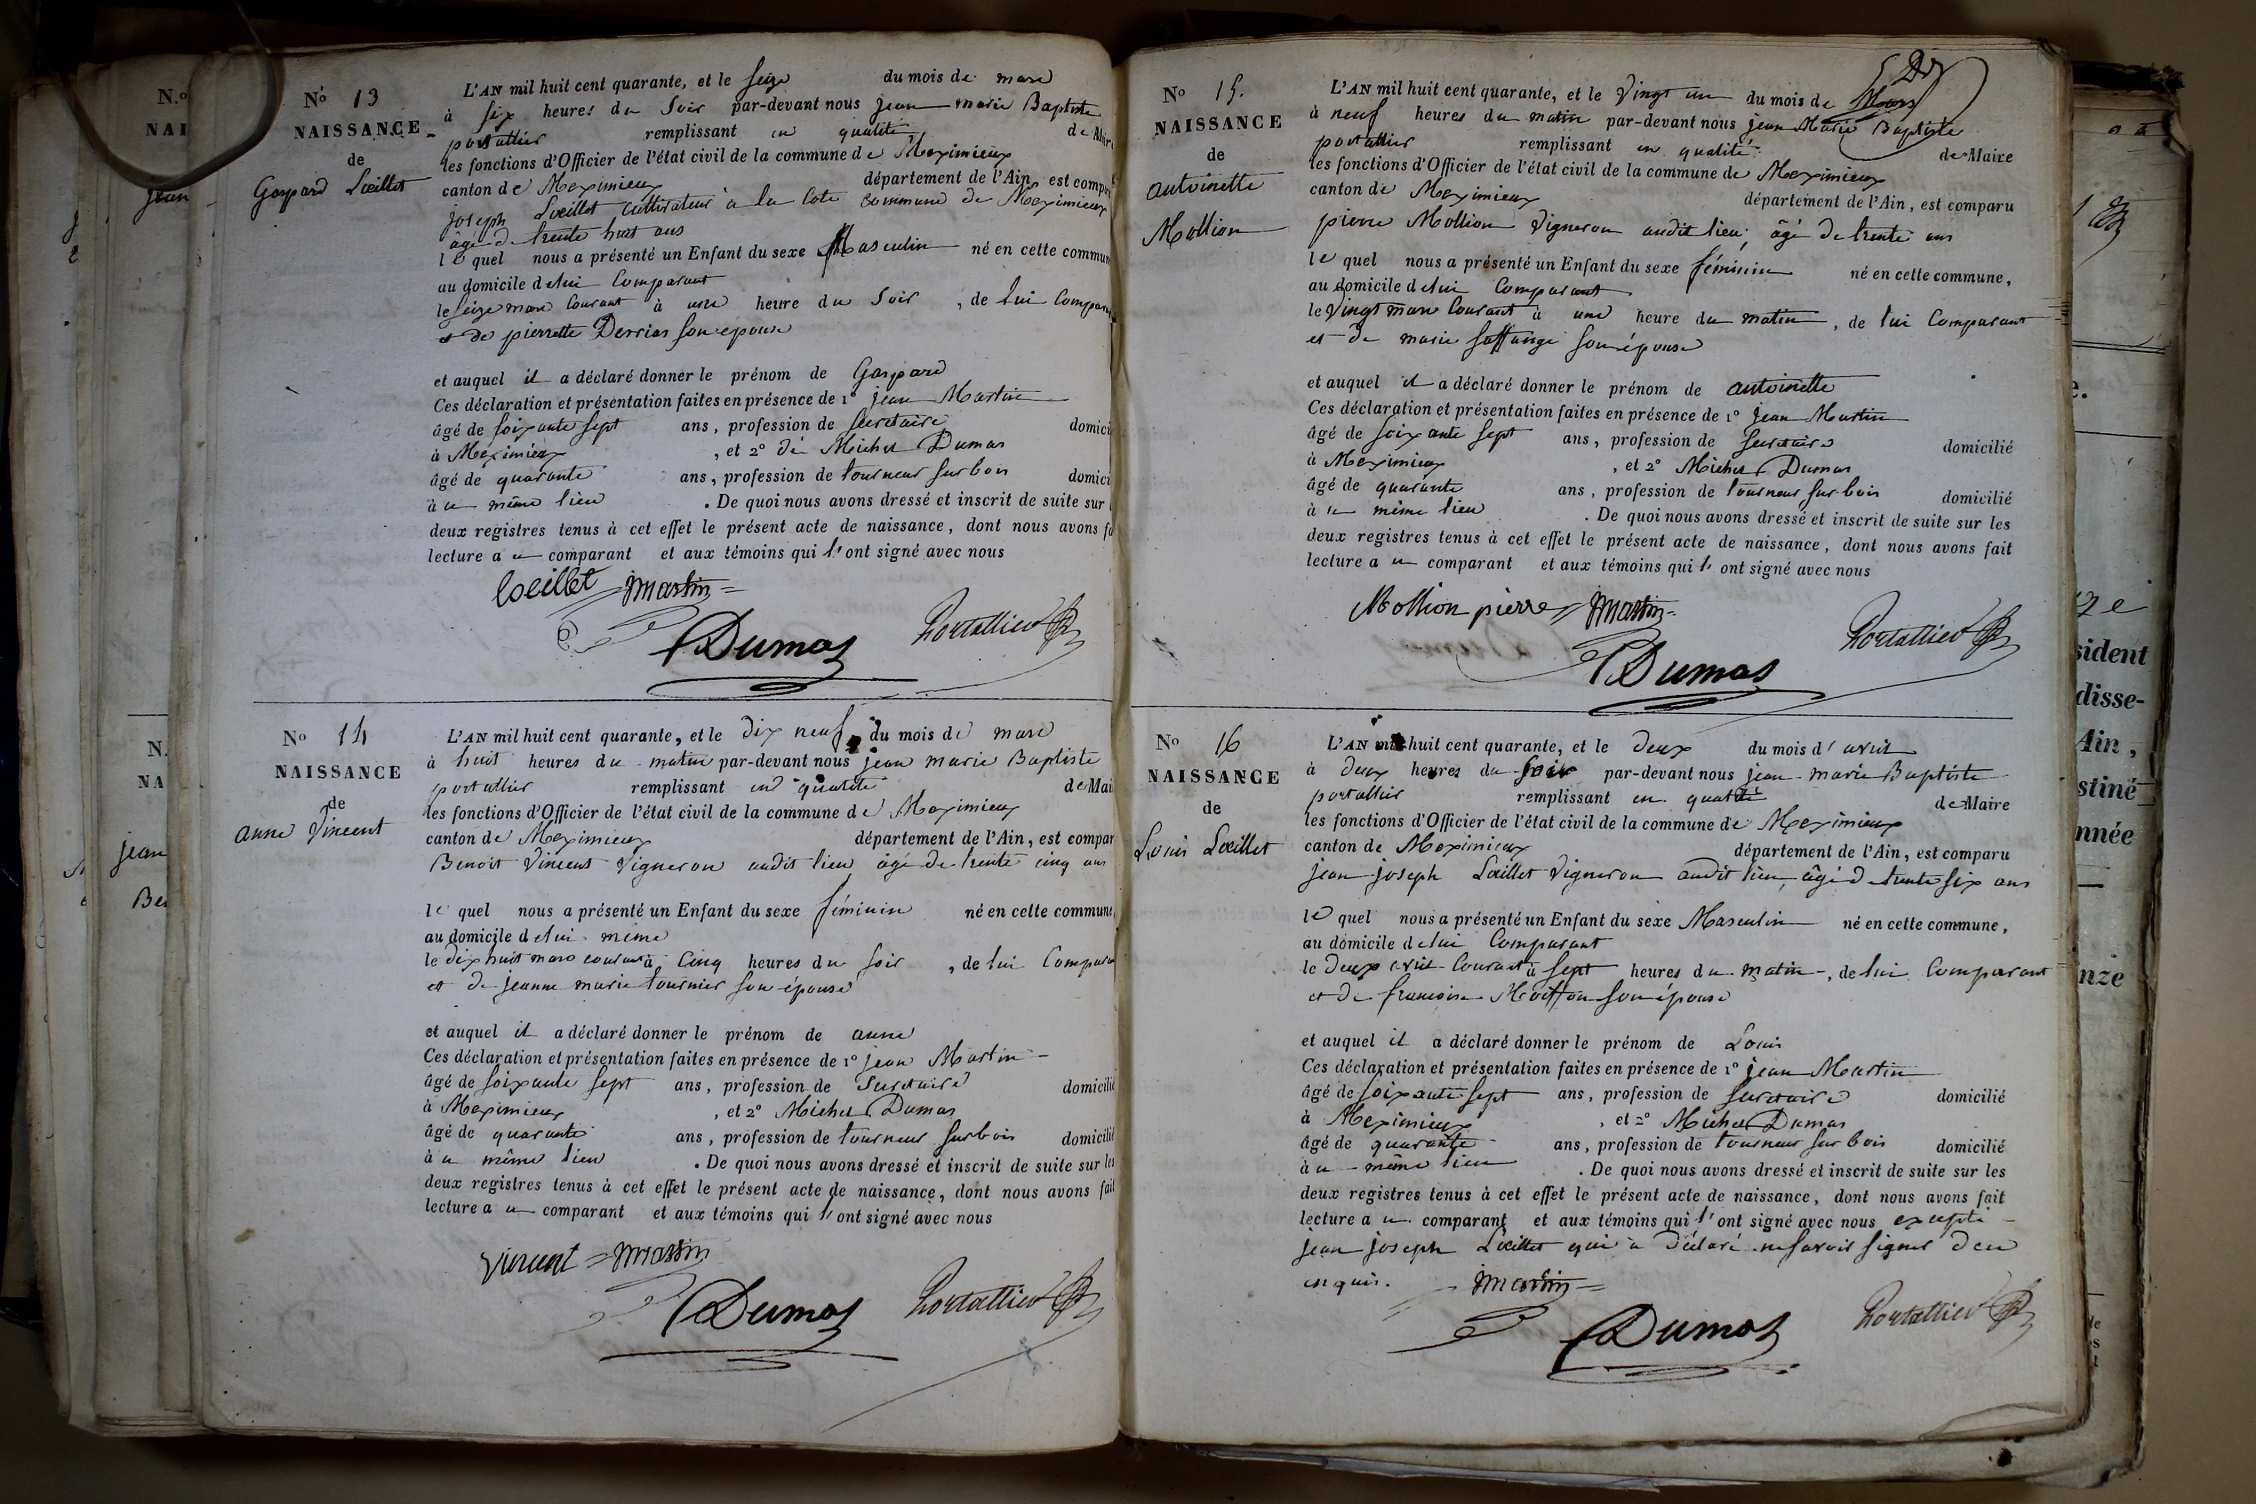 N.o
NAI
jean
N.
NA
jean
Ber
No 13
NAISSANCE
de
Gaspard Lœillet
L'AN mil huit cent quarante, et le seize du mois de mars
à six heures du soir par-devant nous jean marie Baptiste
portallier remplissant en qualité de Mair
les fonctions d'Officier de l'état civil de la commune de Meximieux
canton de Meximieux département de l'Ain, est compar
joseph Lœillet cultivateur à la Cote commune de Meximieux
âgé de trente huit ans
lequel nous a présenté un Enfant du sexe Masculin né en cette commun
au domicile de lui Comparant
le seize mars Courant à une heure du soir, de lui Compara
et de pierrette Derrias son epouse
et auquel il a déclaré donner le prénom de Gaspard
Ces déclaration et présentation faites en présence de 1o jean Martin
âgé de soixante sept ans, profession de Secretaire domici
à Meximieux, et 2o de Michel Dumas
âgé de quarante ans, profession de tourneur sur bois domici
à u même lieu. De quoi nous avons dressé et inscrit de suite sur
deux registres tenus à cet effet le présent acte de naissance, dont nous avons fa
lecture a u comparant et aux témoins qui l'ont signé avec nous
Lœillet martin
Dumas Portallier
No 14
NAISSANCE
de
anne Vincent
L'AN mil huit cent quarante, et le dix neuf du mois de mars
à huit heures du matin par-devant nous jean marie Baptiste
portallier remplissant en qualité de Mai
les fonctions d'Officier de l'état civil de la commune de Meximieux
canton de Meximieux département de l'Ain, est compar
Benoit Vincent Vigneron audit lieu âgé de trente cinq ans
lequel nous a présenté un Enfant du sexe féminin né en cette commune
au domicile de lui même
le dix huit mars courant à Cinq heures du soir, de lui Compara
et de jeanne marie tournier son épouse
et auquel il a déclaré donner le prénom de anne
Ces déclaration et présentation faites en présence de 1o jean Martin
âgé de soixante sept ans, profession de Secretaire domicilié
à Meximieux, et 2o Michel Dumas
âgé de quarante ans, profession de tourneur sur bois domicilié
à u même lieu. De quoi nous avons dressé et inscrit de suite sur les
deux registres tenus à cet effet le présent acte de naissance, dont nous avons fait
lecture a u comparant et aux témoins qui l'ont signé avec nous
Vincent martin
Dumas Portallier
No 15.
NAISSANCE
de
antoinette
Mollion
L'AN mil huit cent quarante, et le Vingt un du mois de Mars
à neuf heures du matin par-devant nous jean Marie Baptiste
portallier remplissant en qualité de Maire
les fonctions d'Officier de l'état civil de la commune de Meximieux
canton de Meximieux département de l'Ain, est comparu
pierre Mollion Vigneron audit lieu, âgé de trente ans
lequel nous a présenté un Enfant du sexe féminin né en cette commune,
au domicile de lui Comparant
le Vingt mars Courant à une heure du matin, de lui Comparant
et de marie saffange son épouse
et auquel il a déclaré donner le prénom de antoinette
Ces déclaration et présentation faites en présence de 1o Jean Martin
âgé de soixante sept ans, profession de Secretaire domicilié
à Meximieux, et 2o Michel Dumas
âgé de quarante ans, profession de tourneur sur bois domicilié
à u même lieu. De quoi nous avons dressé et inscrit de suite sur les
deux registres tenus à cet effet le présent acte de naissance, dont nous avons fait
lecture a u comparant et aux témoins qui l'ont signé avec nous
Mollion pierre martin
Dumas Portallier
No 16
NAISSANCE
de
Louis Lœillet
L'AN mil huit cent quarante, et le deux du mois d'avril
à deux heures du soir par-devant nous jean marie Baptiste
portallier remplissant en qualité de Maire
les fonctions d'Officier de l'état civil de la commune de Meximieux
canton de Meximieux département de l'Ain, est comparu
jean joseph Lœillet Vigneron audit lieu, âgé de trente six ans
lequel nous a présenté un Enfant du sexe Masculin né en cette commune,
au domicile de lui Comparant
le deux avril Courant à sept heures du matin, de lui Comparant
et de francoise Moiffon son épouse
et auquel il a déclaré donner le prénom de Louis
Ces déclaration et présentation faites en présence de 1o jean Martin
âgé de soixante sept ans, profession de secretaire domicilié
à Meximieux, et 2o Michel Dumas
âgé de quarante ans, profession de tourneur sur bois domicilié
à u même lieu. De quoi nous avons dressé et inscrit de suite sur les
deux registres tenus à cet effet le présent acte de naissance, dont nous avons fait
lecture a u comparant et aux témoins qui l'ont signé avec nous excepté
jean joseph Lœillet qui a déclaré ne savoir signer de ce
enquis. martin
Dumas Portallier
sident
disse-
Ain,
stiné
nnée
nze